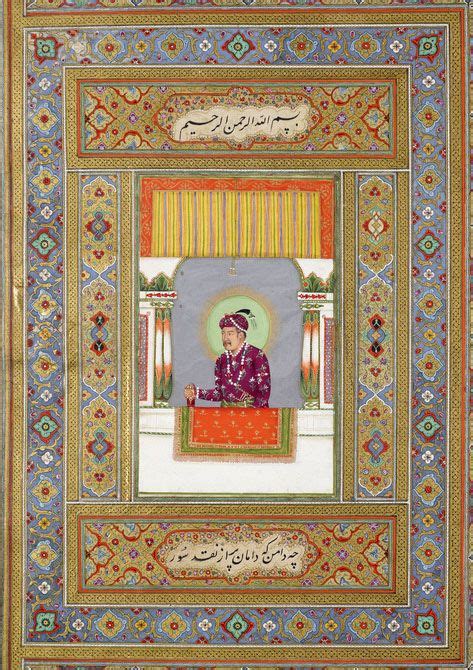 بسم الله الرحمن الرحیم
چه دامن که دامان پر از نقد سور